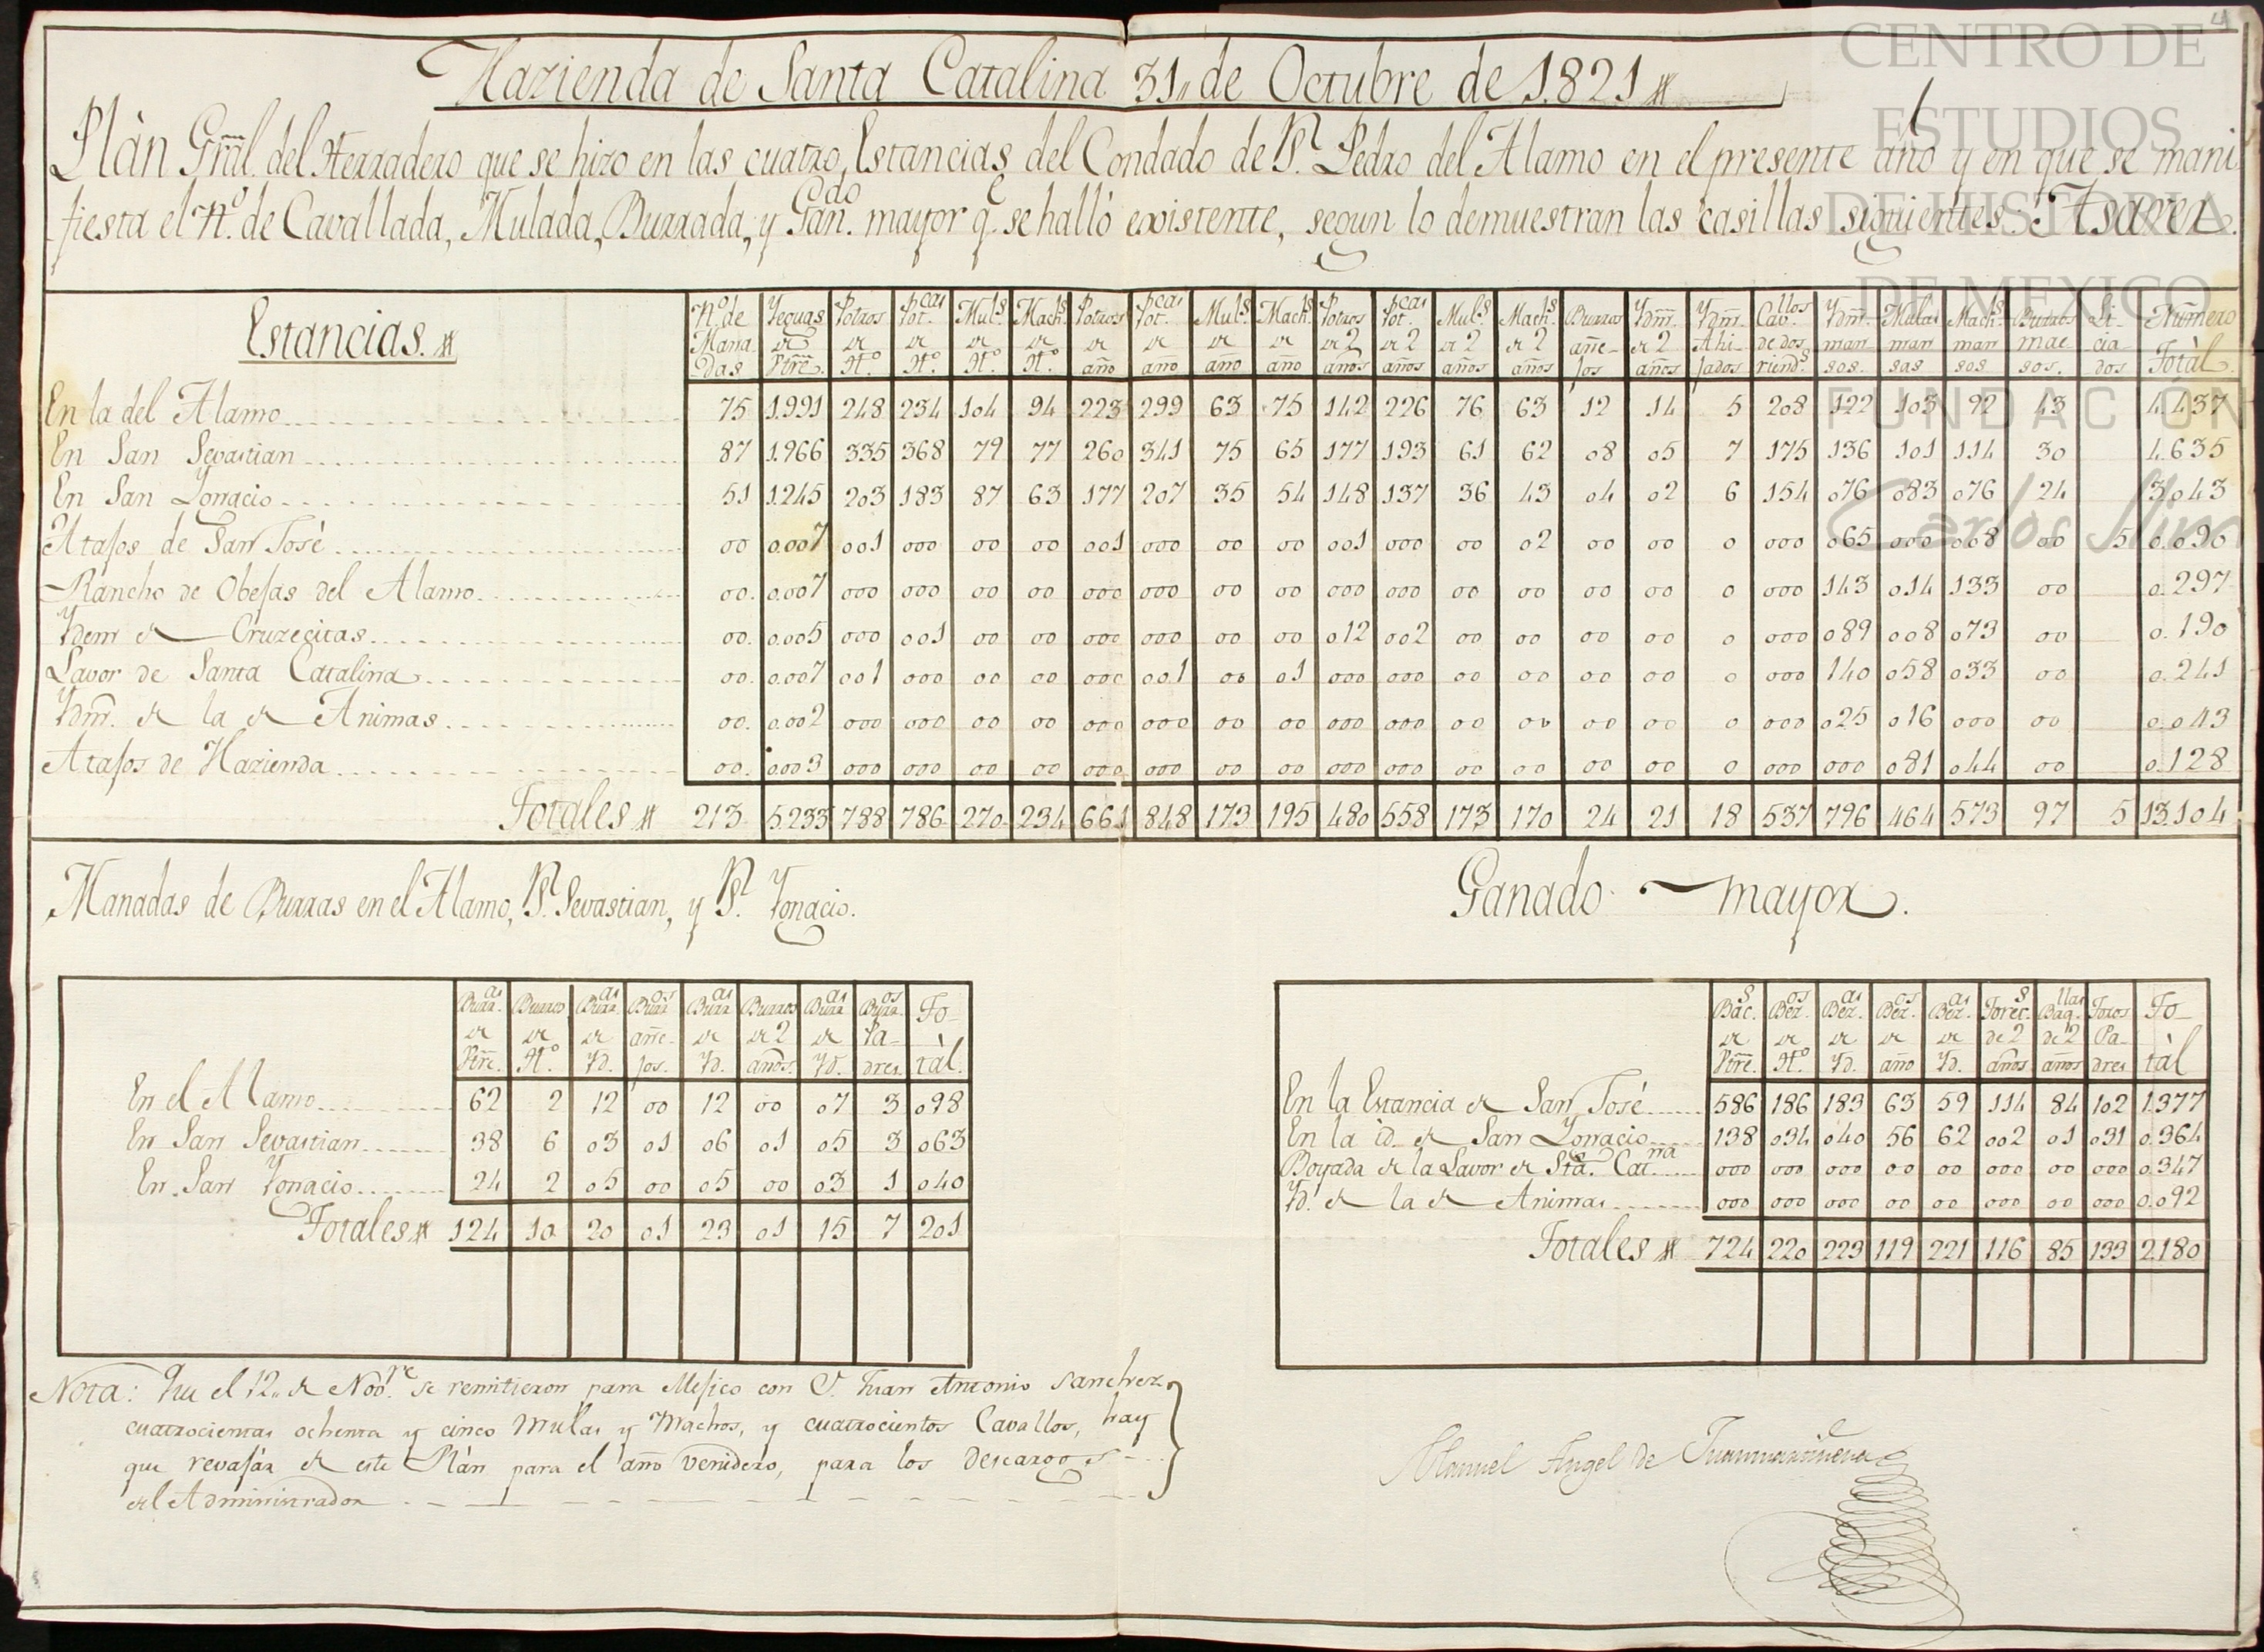 CENTRO DE
ESTUDIOS
DE HISTORIA
DE MEXICO
FUNDACIÓN
Carlos Slim
4
Hazienda de Santa Catalina 31,, de Octubre de 1.821
Plàn Grãl. del Herradero que se hizo en las cuatro Estancias del Condado de Sn. Pedro del Alamo en el presente año y en que se mani
fiesta el No. de Cavallada, Mulada, Burrada, y Gando. mayor qe. se halló existente, segun lo demuestran las casillas siguientes. Asaver.
Estancias. No. de Mana-das Yeguas de Vtre. Potros de Ho. Potcas. de Ho. Muls. de Ho. Machs. de Ho. Potros de año Potcas. de año Muls. de año Machs. de año Potros de 2 años Potcas. de 2 años Muls. de 2 años Machs. de 2 años Burros añe-jos Ydm̃. de 2 años Ydm̃. Ahi-jados Cavllos. de dos riends. Ydm̃. man sos. Mulas man sas Machs. man sos Burros mae sos. Li-cia-dos Número Totàl.
En la del Alamo 75 1.991 248 234 104 94 223 299 63 75 142 226 76 63 12 14 5 208 122 103 92 43 4.437
En San Sevastian 87 1.966 335 368 79 77 260 341 75 65 177 193 61 62 08 05 7 175 136 101 114 30 4.635
En San Ygnacio 51 1.245 203 183 87 63 177 207 35 54 148 137 36 43 04 02 6 154 076 083 076 24 3.043
Atajos de San José 00 0.007 001 000 00 00 001 000 00 00 001 000 00 02 00 00 0 000 065 000 008 00 5 0.090
Rancho de Obejas del Alamo 00. 0.007 000 000 00 00 000 000 00 00 000 000 00 00 00 00 0 000 143 014 133 00 0.297
Ydem de Cruzecitas 00. 0.005 000 001 00 00 000 000 00 00 012 002 00 00 00 00 0 000 089 008 073 00 0.190
Lavor de Santa Catalina 00. 0.007 001 000 00 00 000 001 00 01 000 000 00 00 00 00 0 000 140 058 033 00 0.241
Ydm̃. de la de Animas 00. 0.002 000 000 00 00 000 000 00 00 000 000 00 00 00 00 0 000 025 016 000 00 0.043
Atajos de Hazienda 00. 0.003 000 000 00 00 000 000 00 00 000 000 00 00 00 00 0 000 000 081 044 00 0.128
Totales 213 5.233 788 786 270 234 661 848 173 195 480 558 173 170 24 21 18 537 796 464 573 97 5 13.104
Manadas de Burras en el Alamo, Sn. Sevastian, y Sn. Ygnacio.
Burras. de Vtre. Burros de Ho. Burras. de Yd. Burros. añe-jos. Burras. de Yd. Burros de 2 años. Burras. de Yd. Burros. Pa-dres. To-tàl.
En el Alamo 62 2 12 00 12 00 07 3 098
En San Sevastian 38 6 03 01 06 01 05 3 063
En San Ygnacio 24 2 05 00 05 00 03 1 040
Totales 124 10 20 01 23 01 15 7 201
Ganado mayor.
Bacs. de Vtre. Bezos. de Ho. Bezas. de Yd. Bezos. de año Bezas. de Yd. Torets. de 2 años Baqllas. de 2 años Toros Pa-dres To-tàl
En la Estancia de San José 586 186 183 63 59 114 84 102 1.377
En la id. de San Ygnacio 138 034 040 56 62 002 01 031 0.364
Boyada de la Lavor de Sta. Catna. 000 000 000 00 00 000 00 000 0.347
Yd. de la de Animas 000 000 000 00 00 000 00 000 0.092
Totales 724 220 223 119 221 116 85 133 2.180
Nota: Que el 12,, de Novre. se remitieron para Mejico con D. Juan Antonio Sanchez
cuatrocientas ochenta y cinco Mulas y Machos, y cuatrocientos Cavallos, hay
que revajár de este Plán para el año venidero, para los descargos
del Administrador
Manuel Angel de